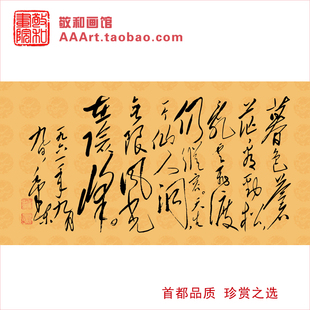 敬和画馆
AAArt.taobao.com
暮色蒼
茫看劲松
乱云飞渡
仍從容。天生一
个仙人洞
无限风光
在險峰。
一九六一年九月
九日
首都品质 珍赏之选